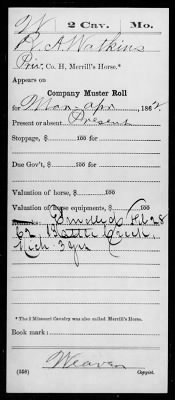 W 2 Cav. Mo.
R. A. Watkins
Priv., Co. H, Merrill's Horse.*
Appears on
Company Muster Roll
for Mar - Apr, 1862
Present or absent Present
Stoppage, $ 100 for
Due Gov't, $ 100 for
Valuation of horse, $ 100
Valuation of horse equipments, $ 100
Remarks: Enrolled Feb 28
62 Battle Creek,
Mich 3 yrs
*The 2 Missouri Cavalry was also called Merrill's Horse.
Book mark:
Weaver
(358) Copyist.